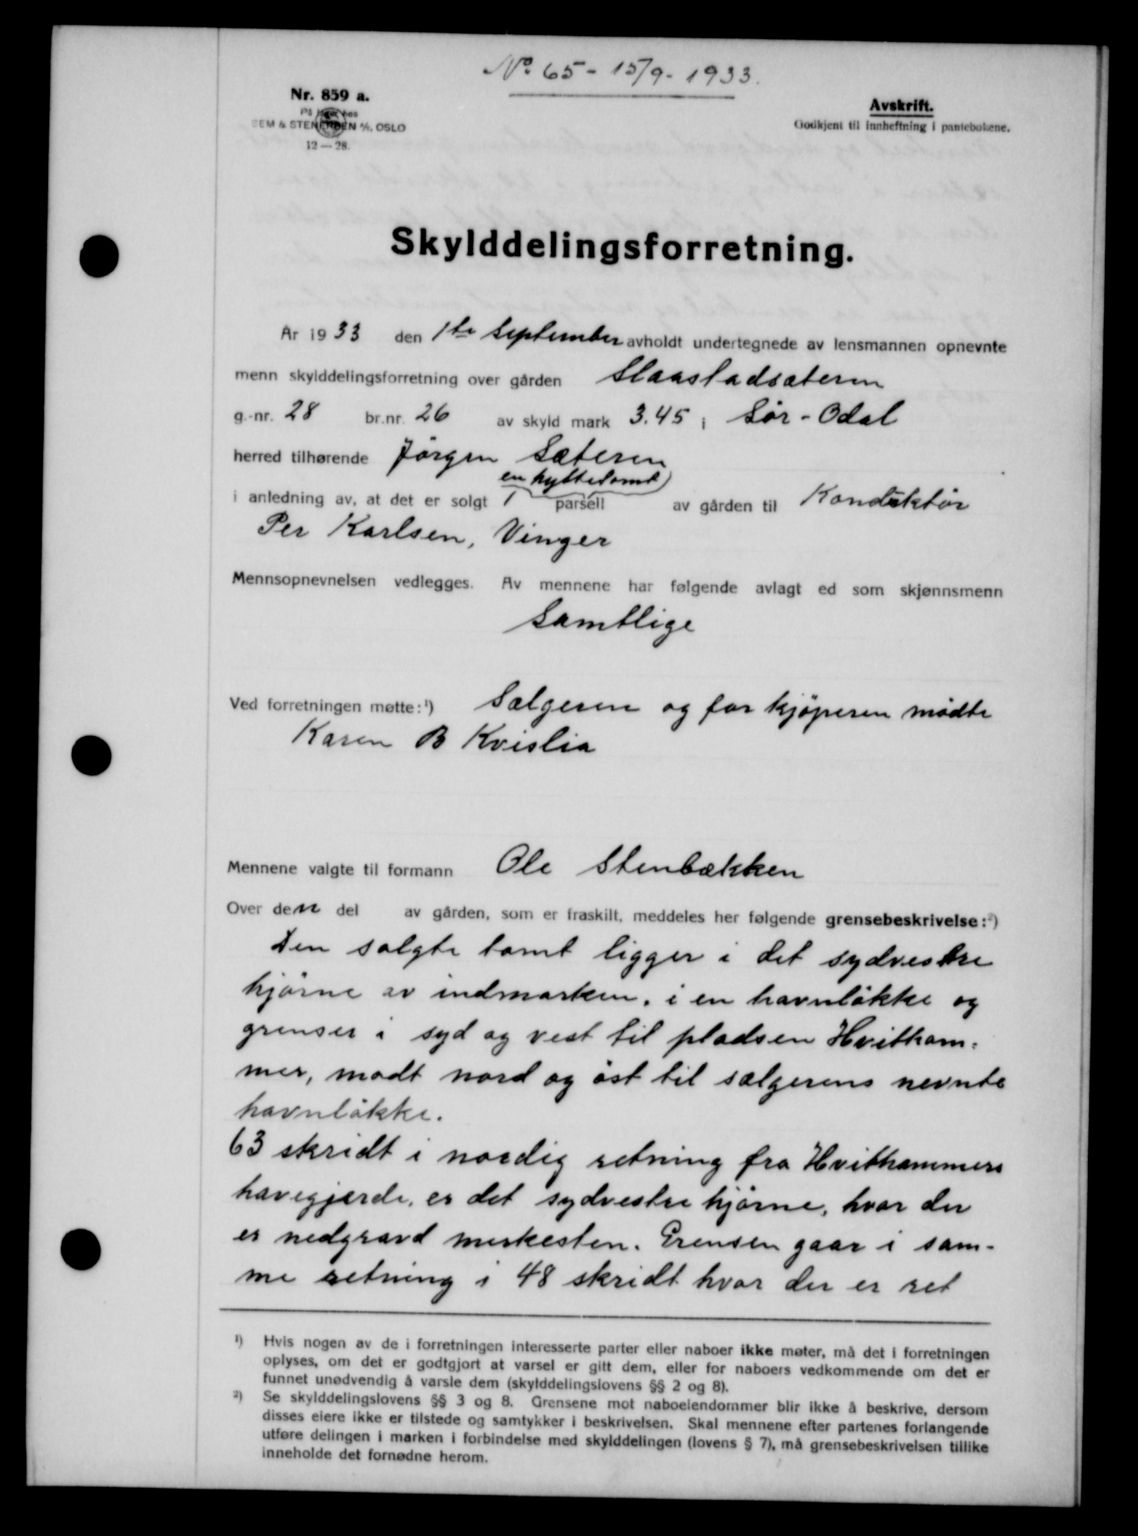 No. 65 - 15/9 - 1933.
Nr. 859 a.
SEM & STENERSEN A/S. OSLO
12 — 28.
Avskrift.
Godkjent til innheftning i pantebøkene.
Skylddelingsforretning.
År 1933 den 1ste September avholdt undertegnede av lensmannen opnevnte
menn skylddelingsforretning over gården Slaastadsæteren
g.-nr. 28 br.nr. 26 av skyld mark 3.45 i Sør-Odal
herred tilhørende Jørgen Sæteren
en hyttetomt
i anledning av, at det er solgt 1 parsell av gården til Konduktør
Per Karlsen, Vinger
Mennsopnevnelsen vedlegges. Av mennene har følgende avlagt ed som skjønnsmenn
Samtlige
Ved forretningen møtte: ¹) Sælgeren og for kjøperen mødte
Karen B Kvislia
Mennene valgte til formann Ole Stenbækken
Over den del av gården, som er fraskilt, meddeles her følgende grensebeskrivelse: ²)
Den solgte tomt ligger i det sydvestre
hjørne av indmarken, i en havnløkke og
grenser i syd og vest til pladsen Hvitham-
mer, modt nord og øst til sælgerens nevnte
havnløkke.
63 skridt i nordig retning fra Hvithammers
havegjerde, er det sydvestre hjørne, hvor der
er nedgravd merkesten. Grensen gaar i sam-
me retning i 48 skridt hvor der er ret
¹) Hvis nogen av de i forretningen interesserte parter eller naboer ikke møter, må det i forretningen
oplyses, om det er godtgjort at varsel er gitt dem, eller for naboers vedkommende om det er
funnet unødvendig å varsle dem (skylddelingslovens §§ 2 og 8).
²) Se skylddelingslovens §§ 3 og 8. Grensene mot naboeiendommer blir ikke å beskrive, dersom
disses eiere ikke er tilstede og samtykker i beskrivelsen. Skal mennene efter partenes forlangende
utføre delingen i marken i forbindelse med skylddelingen (lovens § 7), må grensebeskrivelsen tillike
inneholde det fornødne herom.